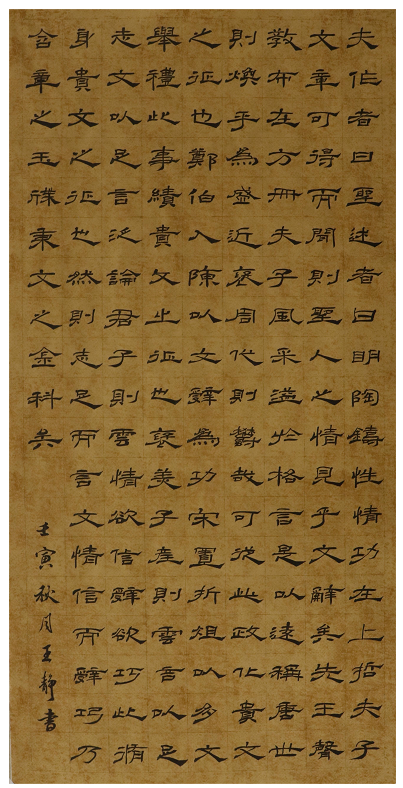 夫作者曰聖述者曰明陶鑄性情功在上哲夫子
文章可得而聞則聖人之情見乎文辭矣先王聲
教布在方冊夫子風采溢於格言是以遠稱唐世
則煥乎為盛近褒周代則鬱哉可從此政化貴文
之征也鄭伯入陳以文辭為功宋置折俎以多文
舉禮此事績貴文之征也褒美子產則雲言以足
志文以足言泛論君子則雲情欲信辭欲巧此脩
身貴文之征也然則志足而言文情信而辭巧乃
含章之玉牒秉文之金科矣
壬寅秋月王靜書